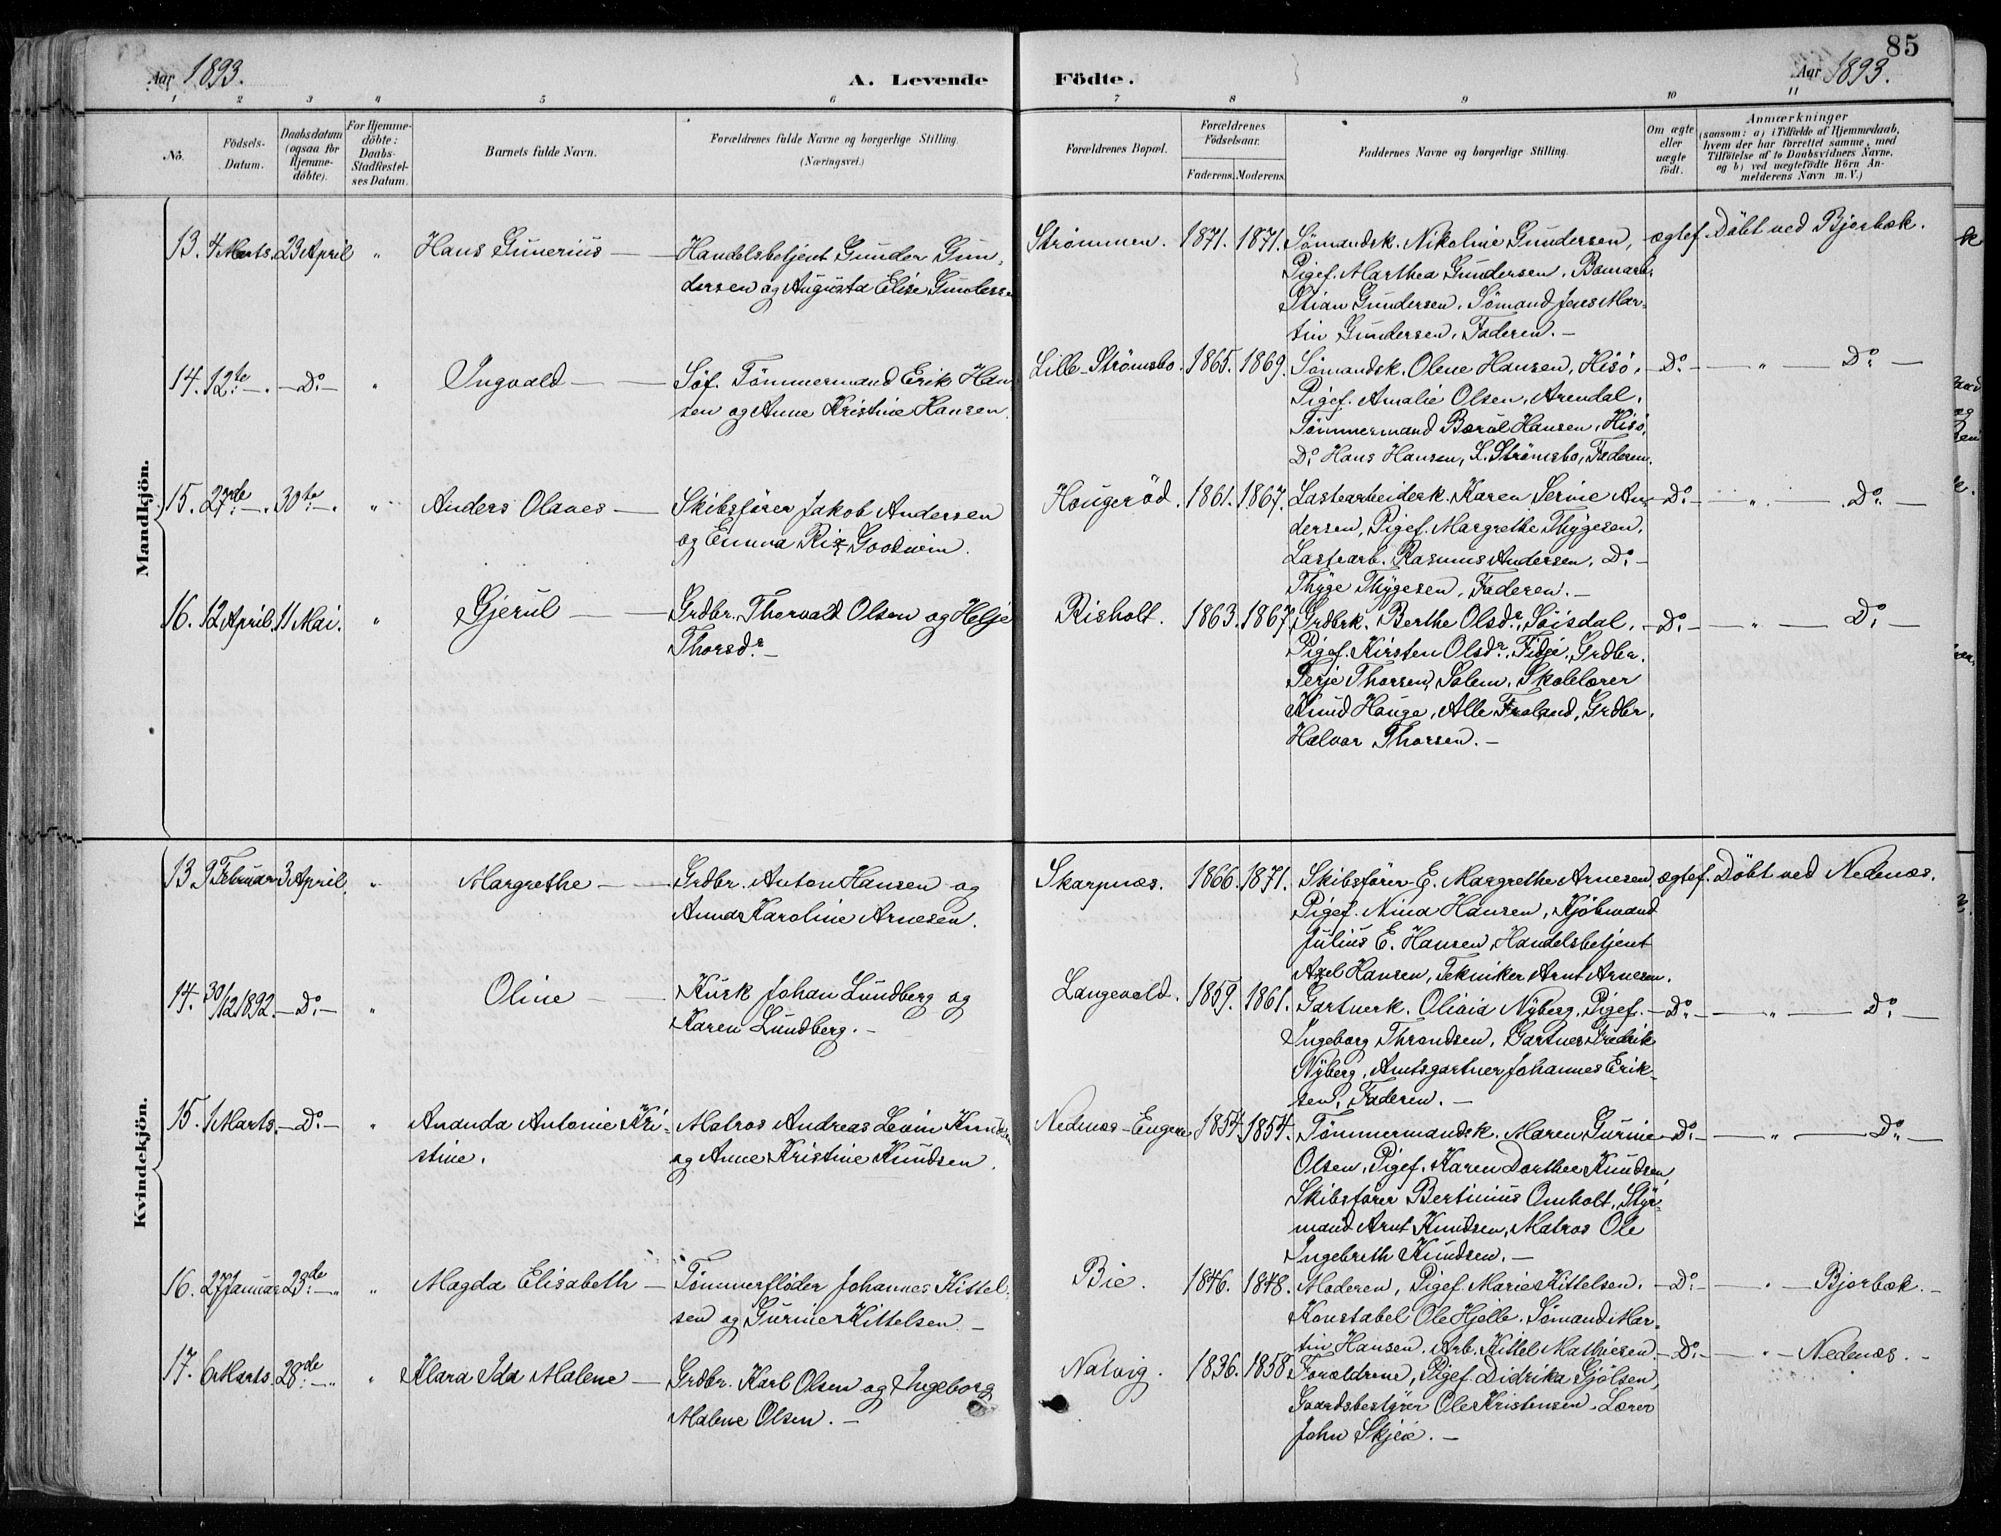 85
Aar 1893.
A. Levende Födte.
Aar 1893.
1 2 3 4 5 6 7 8 9 10 11
No.
Födsels-
Datum.
Daabsdatum
(ogsaa for
Hjemme-
döbte).
For Hjemme-
döbte:
Daabs-
Stadfæstel-
ses Datum.
Barnets fulde Navn.
Forældrenes fulde Navne og borgerlige Stilling.
(Næringsvei.)
Forældrenes Bopæl.
Forældrenes
Födselsaar.
Faderens. Moderens.
Faddernes Navne og borgerlige Stilling.
Om ægte
eller
uægte
födt.
Anmærkninger
(saasom: a) i Tilfælde af Hjemmedaab,
hvem der har forrettet samme, med
Tilföielse af to Daabsvidners Navne,
og b) ved uægtefödte Börn An-
melderens Navn m. V.)
Mandkjön.
13. 4 Marts. 23 April " Hans Gunerius — Handelsbetjent Gunder Gun-
dersen og Augusta Elise Gundersen
Strømmen. 1871. 1871. Sømandsk. Nikoline Gundersen, ægtef. Döbt ved Bjorbæk.
Pigef. Marthea Gundersen, Bomarb.
Stian Gundersen, Sømand Jens Mar-
tin Gundersen, Faderen. —
14. 12te — Do — " Ingvald — Søf. Tømmermand Erik Han-
sen og Anne Kristine Hansen.
Lille-Strømsbo. 1865. 1869. Sømandsk. Olene Hansen, Hisö, — Do — " — Do —
Pigef. Amalie Olsen, Arendal.
Tømmermand Hansen, Hisö,
Do Hans Hansen, L. Strømsbo, Faderen.
15. 27de — 30te — " Anders Olaves — Skibsfører Jakob Andersen
og Emma Rix Goodwin.
Hougeröd. 1861. 1867. Lastearbeiderk. Karen Serine An- Do — " — Do —
dersen, Pigef. Margrethe Thygesen,
Lastearb. Rasmus Andersen, Do —
Thyge Thygesen, Faderen. —
16. 12 April. 11 Mai. " Gjerul — Grdbr. Thorvald Olsen og Helje
Thorsdr —
Risholt. 1863. 1867. Grdbrk. Berthe Olsdr, Söisdal, — Do — " — Do —
Pigef. Kirsten Olsdr, Fidje, Grdbr.
Terje Thorsen, Solem, Skolelærer
Knud Houge, Alle Froland, Grdbr.
Halvor Thorsen. —
Kvindekjön.
13 9 Februar 3 April. " Margrethe — Grdbr. Anton Hansen og
Anna Karoline Arnesen.
Skarpnæs. 1866. 1871. Skibsfører-E. Margrethe Arnesen ægtef. Döbt ved Nedenæs.
Pigef. Nina Hansen, Kjöbmand
Julius E. Hansen, Handelsbetjent
Axel Hansen, Tekniker Arnt Arnesen.
14. 30/12 1892. — Do — " Oline — Kusk Johan Lundberg og
Karen Lundberg. —
Langevold. 1859. 1861. Gartnerk. Olivia Nyberg, Pigef. — Do — " — Do —
Ingeborg Throndsen, Gartner Fredrik
Nyberg, Amtsgartner Johannes Erik-
sen, Faderen. —
15. 1 Marts. — Do — " Ananda Antonie Kri- Matros Andreas Levin Knudsen
stine. og Anne Kristine Knudsen.
Nedenæs-Engene 1854. 1854. Tømmermandsk. Maren Gurine — Do — " — Do —
Olsen, Pigef. Karen Dorthee Knudsen,
Skibsfører Bertinius Omholt, Styr-
mand Arnt Knudsen, Matros Ole
Ingebreth Knudsen. —
16. 27 Januar 23de — " " Magda Elisabeth — Tømmerfløder Johannes Kittel-
sen og Gurine Kittelsen. —
Bie. 1846. 1848. Moderen, Pigef. Marie Kittelsen. — Do — " — Bjorbæk. —
Konstabel Ole Hjelle. Sømand Mar-
tin Hansen. Arb. Kittel Mathiesen.
17. 6 Marts. 28de — " " Klara Ida Malene — Grdbr. Karl Olsen og Ingeborg
Malene Olsen. —
Natvig. 1836. 1858. Forældrene, Pigef. Didrika Gjölsen, — Do — " — Nedenæs. —
Gaardsbestyrer Ole Kristensen. Lærer
John Skjeie. —